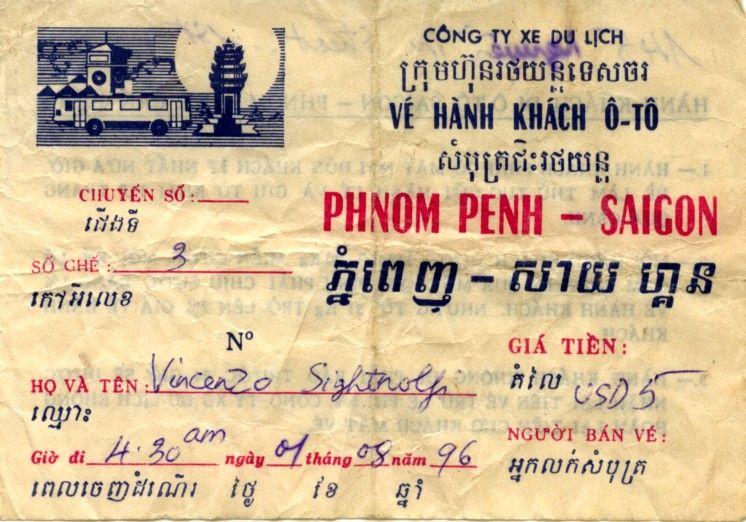 CÔNG TY XE DU LỊCH
ក្រុមហ៊ុនរថយន្តទេសចរ
VÉ HÀNH KHÁCH Ô-TÔ
សំបុត្រជិះរថយន្ត
PHNOM PENH – SAIGON
ភ្នំពេញ – សាយហ្គន
CHUYẾN SỐ:
ជើងទី
SỐ GHẾ: 3
កៅអីលេខ
Nº
HỌ VÀ TÊN: Vincenzo
ឈ្មោះ
GIÁ TIỀN:
តំលៃ USD 5
NGƯỜI BÁN VÉ:
អ្នកលក់សំបុត្រ
Giờ đi 4.30 am ngày 01 tháng 08 năm 96
ពេលចេញដំណើរ ថ្ងៃ ខែ ឆ្នាំ